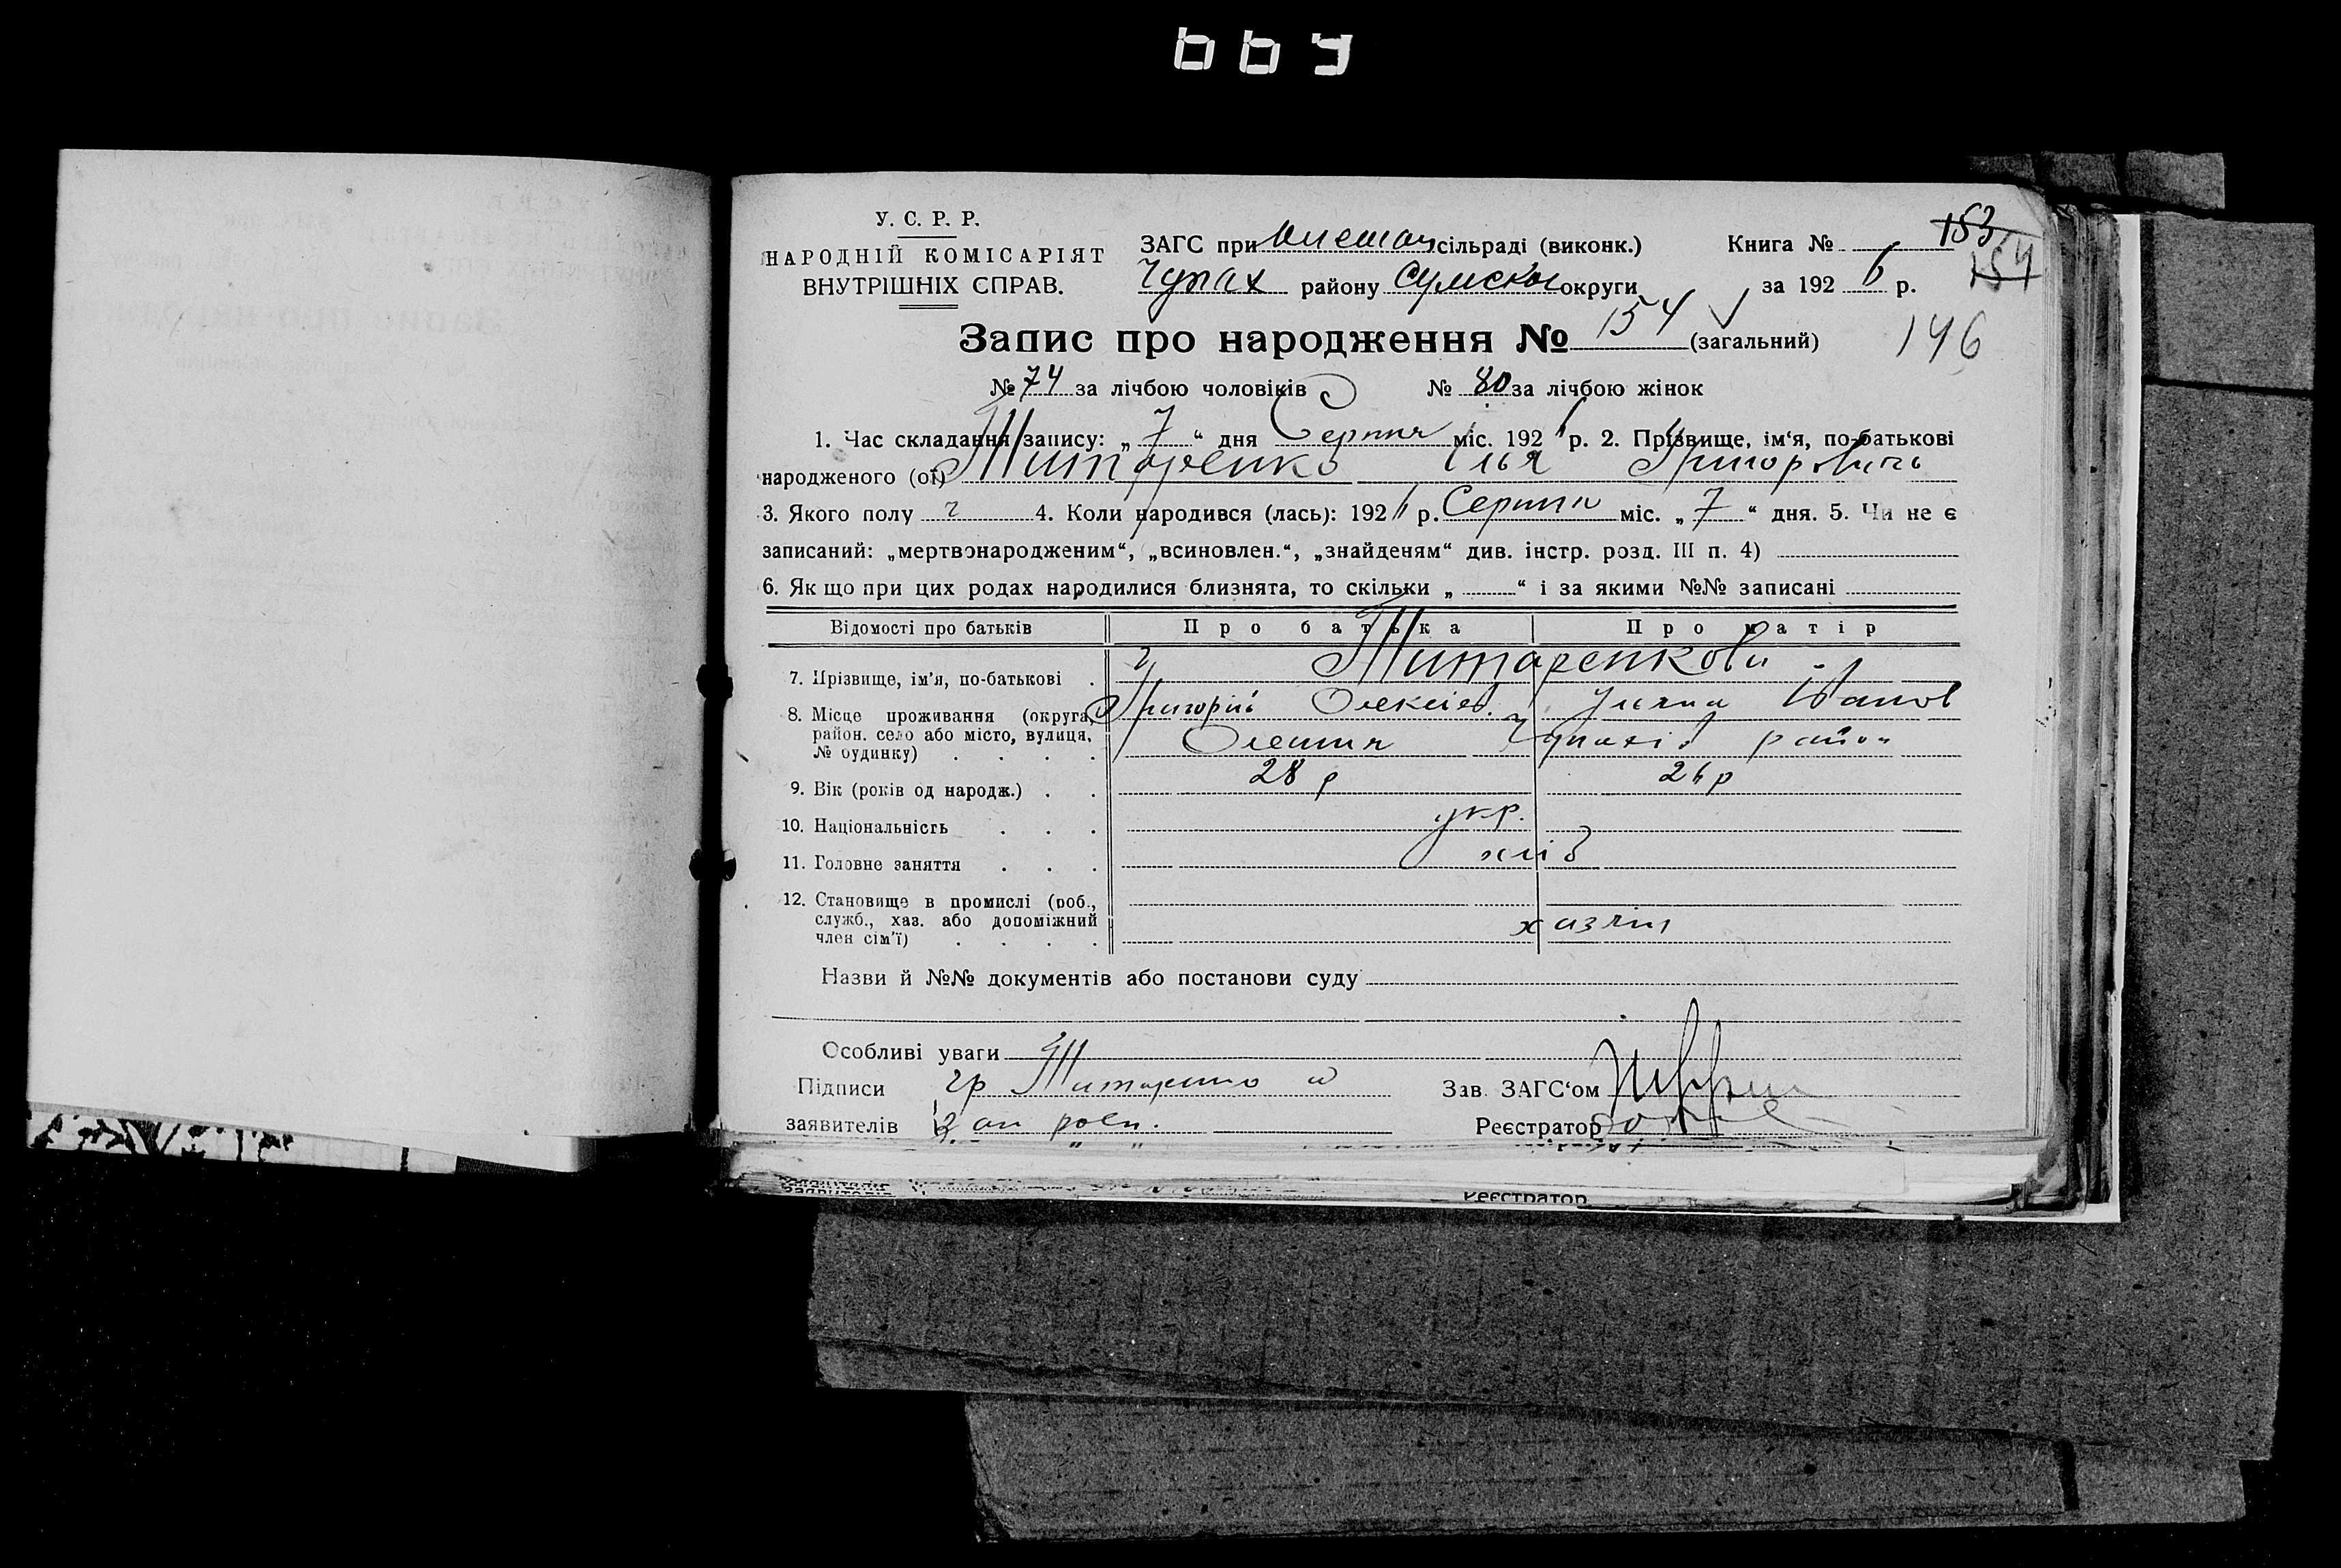 У. С. Р. Р.
НАРОДНІЙ КОМІСАРІЯТ
ВНУТРІШНІХ СПРАВ.
ЗАГС при сільраді (виконк.) Книга № 153
Чупах району Сумської округи за 1926 р. 154
Запис про народження № 154 (загальний) 146
№ 74 за лічбою чоловіків № 80 за лічбою жінок
1. Час складання запису: „ 7 “ дня Серпня міс. 1926 р. 2. Прізвище, ім‘я, по-батькові
народженого (ої) Титаренко Ілья Григорович
3. Якого полу ч 4. Коли народився (лась): 1926 р. Серпня міс. „ 7 “ дня. 5. Чи не є
записаний: „мертвонародженим“, „всиновлен.“, „знайденям“ див. інстр. розд. III п. 4)
6. Як що при цих родах народилися близнята, то скільки „ “ і за якими №№ записані
Відомості про батьків Про батька Про матір
7. Прізвище, ім'я, по-батькові . Титаренкови
Григорій Олексієв. Уляна Іванов
8. Місце проживання (округа,
район, село або місто, вулиця,
№ будинку) . . . . Олешня Чупахів район
9. Вік (років од народж.) . . 28 р 26 р
10. Національність . . . укр.
11. Головне заняття . . . хліб
12. Становище в промислі (роб.,
служб., хаз. або допоміжний
член сім'ї) . . . . хазяін
Назви й №№ документів або постанови суду
Особливі уваги
Підписи гр Титаренко Зав. ЗАГС‘ом
заявителів Реєстратор
Реєстратор